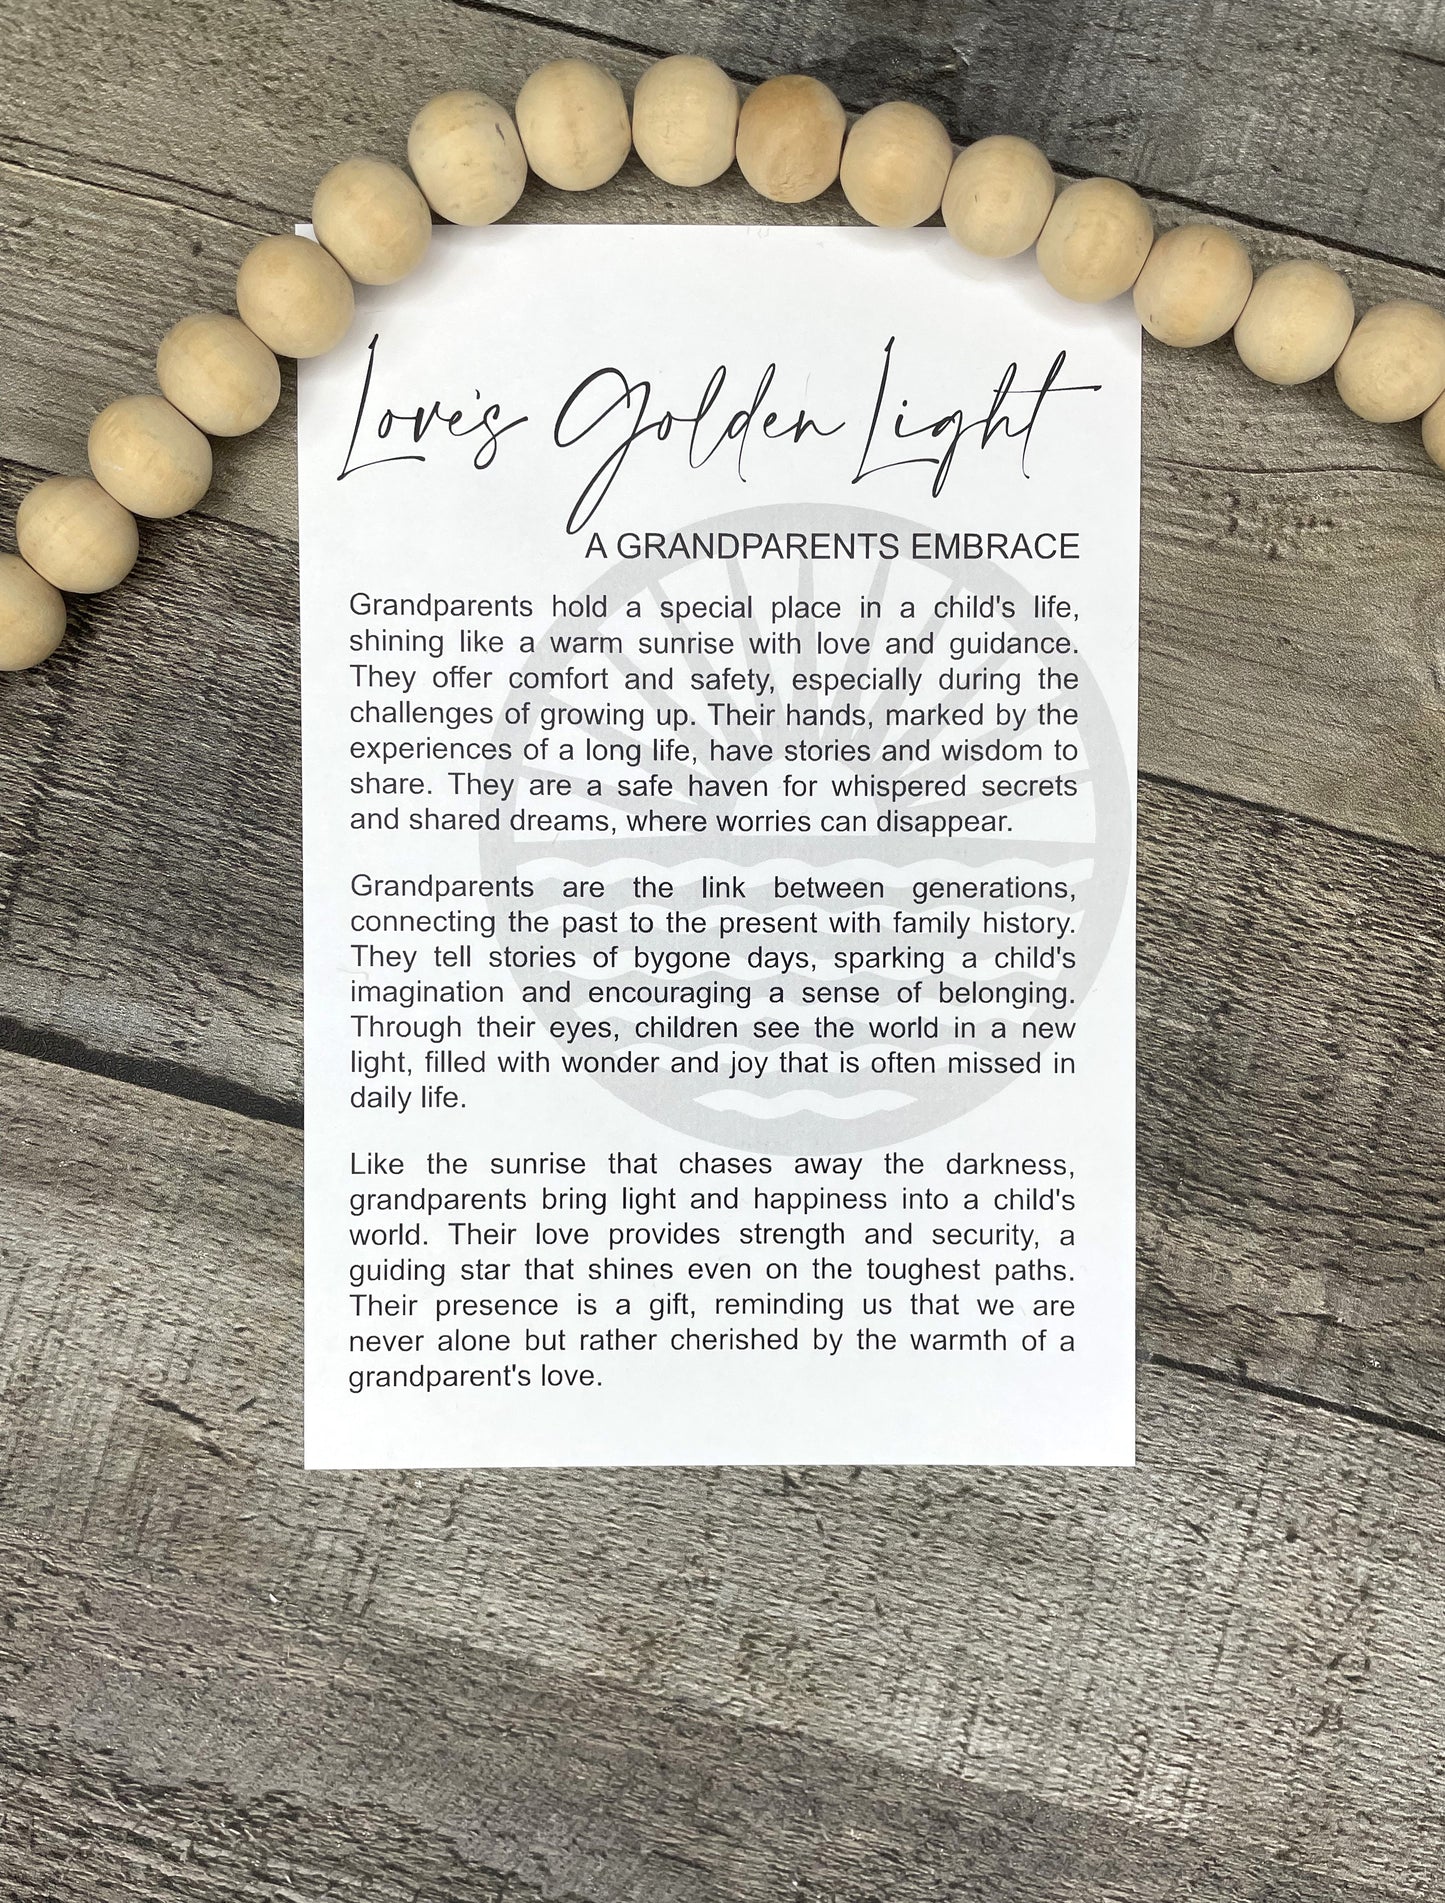 Love's Golden Light
A GRANDPARENTS EMBRACE
Grandparents hold a special place in a child's life,
shining like a warm sunrise with love and guidance.
They offer comfort and safety, especially during the
challenges of growing up. Their hands, marked by the
experiences of a long life, have stories and wisdom to
share. They are a safe haven for whispered secrets
and shared dreams, where worries can disappear.
Grandparents are the link between generations,
connecting the past to the present with family history.
They tell stories of bygone days, sparking a child's
imagination and encouraging a sense of belonging.
Through their eyes, children see the world in a new
light, filled with wonder and joy that is often missed in
daily life.
Like the sunrise that chases away the darkness,
grandparents bring light and happiness into a child's
world. Their love provides strength and security, a
guiding star that shines even on the toughest paths.
Their presence is a gift, reminding us that we are
never alone but rather cherished by the warmth of a
grandparent's love.